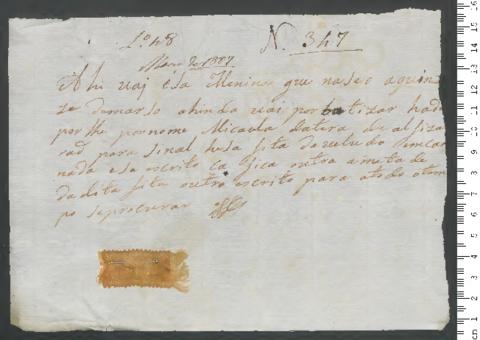 Lº 48
N. 347
Ahi vai esa Menina que naseo a quin
ze demarso ahinda vai por batizar hade
por lhe por nome Micaela
rad para sinal huma fita de veludo emcar
nada esa escrito ca fica outra ametade
da dita fita outro escrito para atodo otem
po se procurar